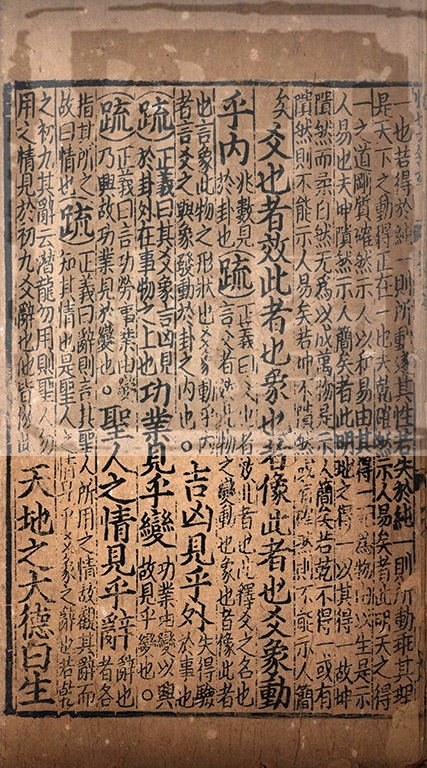 一也若得於純一則所動遂其性若失於純一則所動乖其理
是天下之動得正在一也夫乾確然示人易矣者此明天之得
一之道剛質確然示人以和易由其得一无為物由以生是示
人易也夫坤隤然示人簡矣者此明地之得一以其得一故坤
隤然而柔自然无為以成萬物是示人簡矣若乾不得一或有
隤然則不能示人易矣若坤不隤然或有確然則不能示人簡
矣爻也者效此者也象也者像此者也爻象動
乎内兆數見於卦也疏正義曰爻也者效此者也此釋爻之名也言爻者效此物之變動也象也者像此者
也言象此物之形狀也爻象動乎内者言爻之與象發動於卦之内也。吉凶見乎外失得驗於事也
疏正義曰其爻象吉凶見於卦外在事物之上也功業見乎變功業由變以興故見乎變也。
疏正義曰言功勞事業由變乃興故功業見於變也。聖人之情見乎辭辭也者各
指其所之故曰情也疏正義曰辭則言其聖人所用之情故觀其辭而知其情也是聖人之情見乎爻象之辭也若乾
之初九其辭云潛龍勿用則聖人勿用之情見於初九爻辭也他皆倣此天地之大德曰生